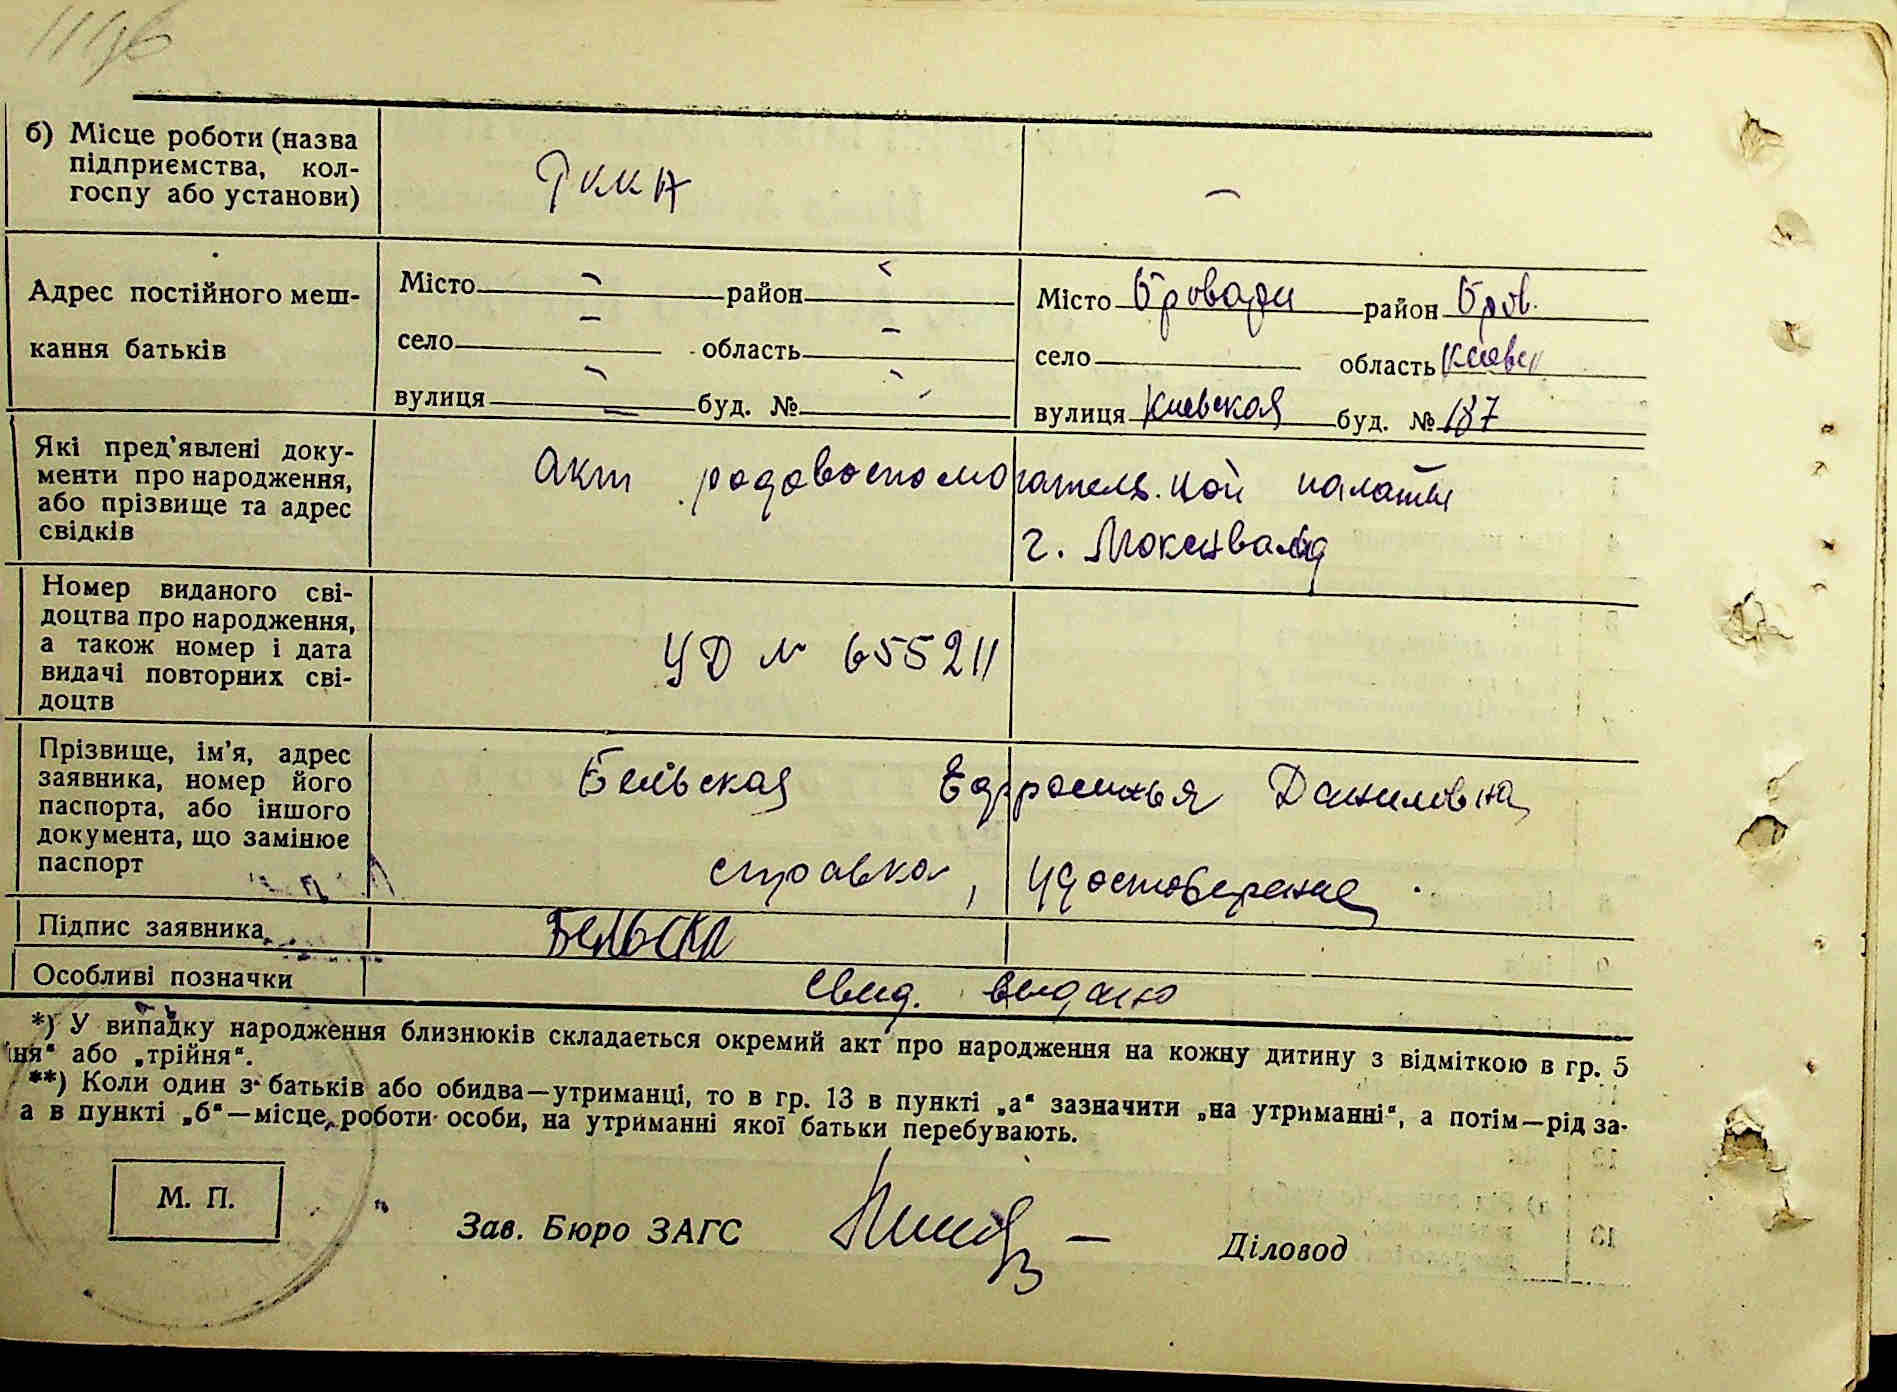 б) Місце роботи (назва
підприємства, кол-
госпу або установи)
РККА
—
Адрес постійного меш-
кання батьків
Місто — район —
село — область —
вулиця — буд. № —
Місто Бровари район Бров.
село область Киевск
вулиця Киевская буд. № 187
Які пред'явлені доку-
менти про народження,
або прізвище та адрес
свідків
Акт родовспомогательной палаты
г.
Номер виданого сві-
доцтва про народження,
а також номер і дата
видачі повторних сві-
доцтв
УД № 655211
Прізвище, ім'я, адрес
заявника, номер його
паспорта, або іншого
документа, що замінює
паспорт
Бельская Ефросинья Даниловна
справка, удостоверение
Підпис заявника
Бельска
Особливі позначки
свид. выдано
*) У випадку народження близнюків складається окремий акт про народження на кожну дитину з відміткою в гр. 5
ня" або „трійня".
**) Коли один з батьків або обидва—утриманці, то в гр. 13 в пункті „а" зазначити „на утриманні", а потім—рід за-
а в пункті „б"—місце роботи особи, на утриманні якої батьки перебувають.
М. П.
Зав. Бюро ЗАГС — Діловод